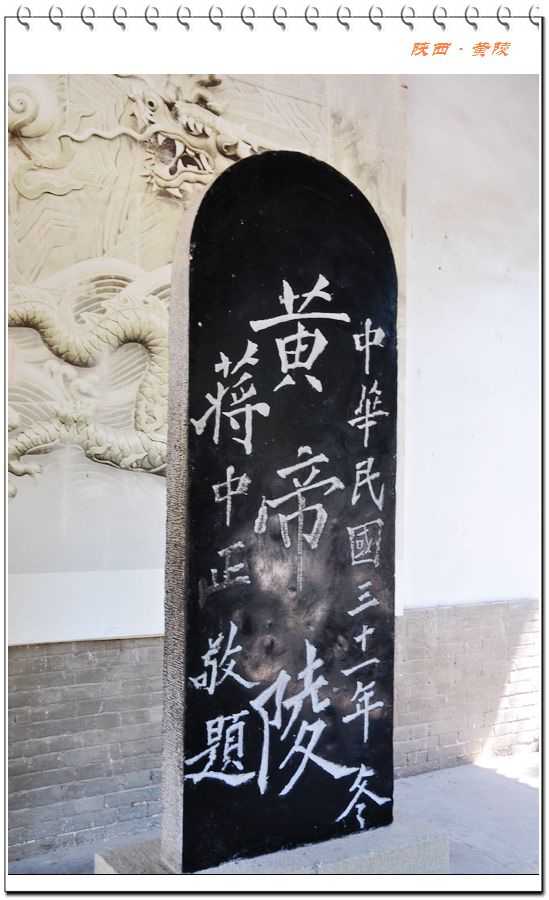 陕西·黄陵
中華民國三十一年冬
黄帝陵
蔣中正敬題